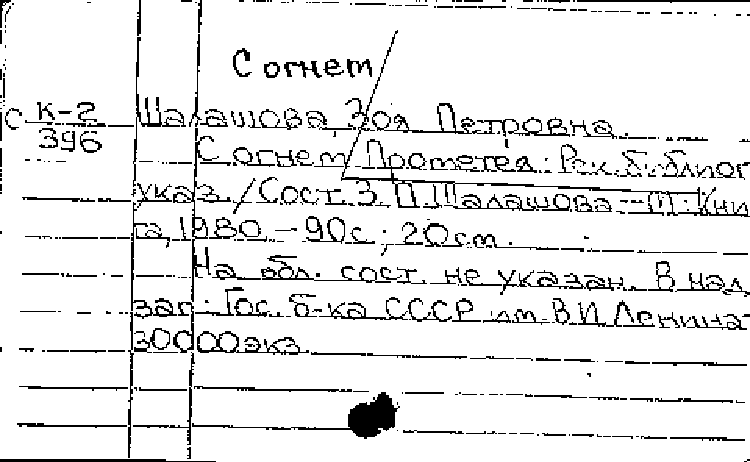 С огнет
С К-2
396
Шалашова, Зоя Петровна.
С огнет Прометея: Рек. библиог
указ. / Сост. З. П. Шалашова – М: Кни
га, 1980. – 90с; 20см.
На обл. сост. не указан. В над
заг: Гос. б-ка СССР им. В.И. Ленина
30000экз.